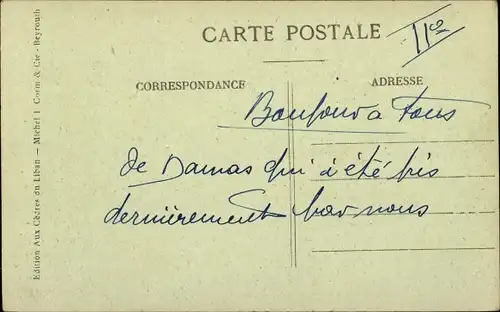 CARTE POSTALE
11e2
CORRESPONDANCE
ADRESSE
Bonjour a Tous
de Damas qui a été pris
dernièrement par nous
Edition Aux Cèdres du Liban — Michel I. Corm & Cie - Beyrouth